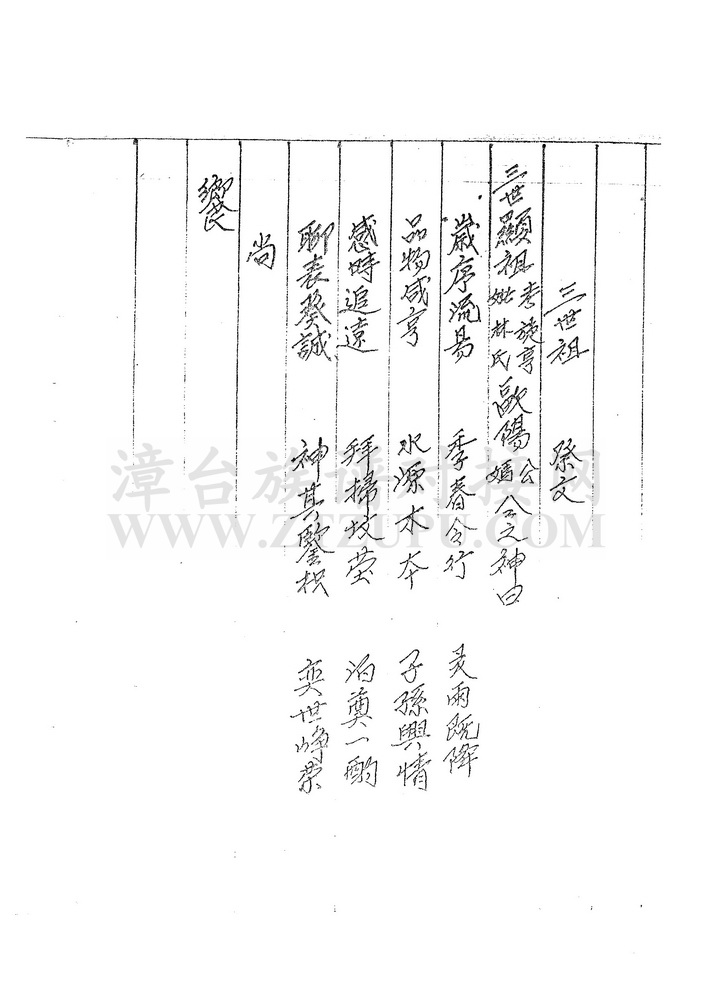 三世祖 祭文
三世顯祖考施亨妣林氏歐陽公媽公之神曰
歲序流易 季春令行 灵雨既降
品物咸亨 水源木本 子孫興情
感時追遠 拜掃坟茔 泊奠一酌
聊表癸誠 神其鑒枳 奕世峥荣
尚
饗
漳台族谱对接网
WWW.ZTZUPU.COM